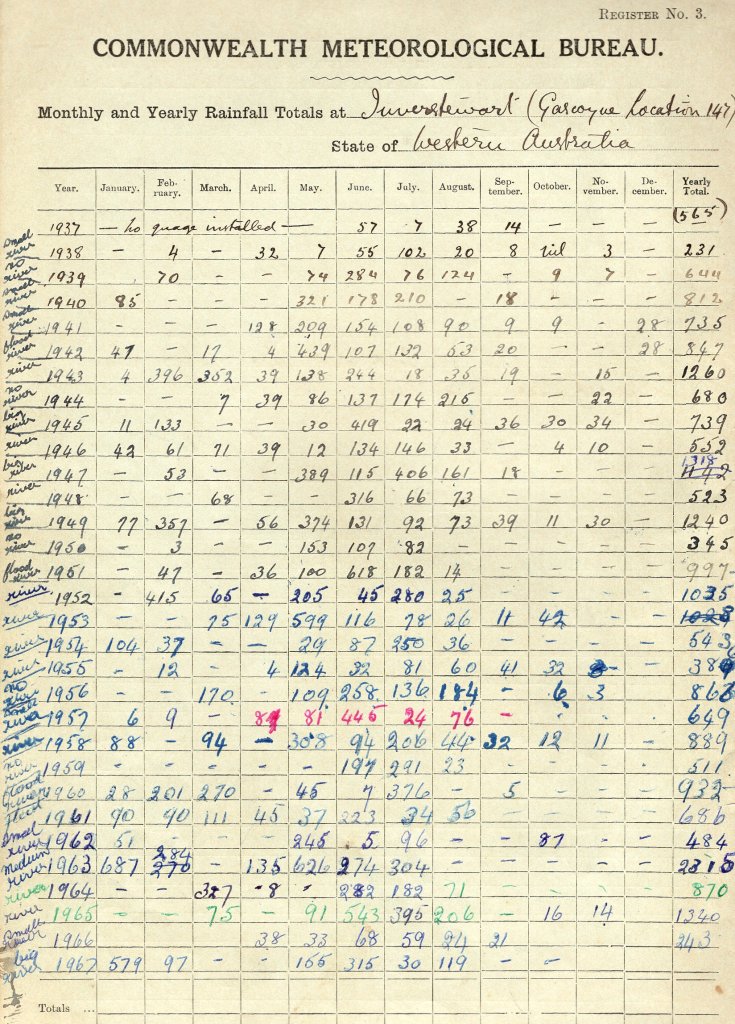 REGISTER No. 3.
COMMONWEALTH METEOROLOGICAL BUREAU.
Monthly and Yearly Rainfall Totals at Inverstewart (Gascoyne Location 147)
State of Western Australia
Year. January. Feb-ruary. March. April. May. June. July. August. Sep-tember. October. No-vember. De-cember. Yearly Total.
(565)
1937 — no guage installed — 57 7 38 14 – – –
small river 1938 – 4 – 32 7 55 102 20 8 nil 3 – 231
no river 1939 70 – – 74 284 76 124 – 9 7 – 644
small river 1940 85 – – – 321 178 210 – 18 – – – 812
small river 1941 – – – 128 209 154 108 90 9 9 – 28 735
flood river 1942 47 – 17 4 439 107 132 53 20 – – 28 847
river 1943 4 396 352 39 138 244 18 35 19 – 15 – 1260
no river 1944 – – 7 39 86 137 174 215 – – 22 – 680
big river 1945 11 133 – – 30 419 22 24 36 30 34 – 739
river 1946 42 61 71 39 12 134 146 33 – 4 10 – 552
1318
big river 1947 – 53 – – 389 115 406 161 18 – – – 1142
river 1948 – – 68 – – 316 66 73 – – – – 523
big river 1949 77 357 – 56 374 131 92 73 39 11 30 – 1240
no river 1950 – 3 – – 153 107 82 – – – – – 345
flood river 1951 – 47 – 36 100 618 182 14 – – – – 997
river 1952 – 415 65 – 205 45 280 25 – – – – 1035
river 1953 – – 75 129 599 116 78 26 11 42 – – 1028
river 1954 104 37 – – 29 87 250 36 – – – – 543
river 1955 – 12 – 4 124 32 81 60 41 32 – – 389
no river 1956 – – 170 – 109 258 136 184 – 6 3 – 863
small river 1957 6 9 – 81 445 24 76 – 649
river 1958 88 – 94 – 308 94 206 44 32 12 11 – 889
no river 1959 – – – – – 197 291 23 – – – – 511
flood river 1960 28 201 270 – 45 7 376 – 5 – – – 932
1961 90 90 111 45 37 223 34 56 – – – – 686
small river 1962 51 – – – 245 5 96 – – 87 – – 484
284
medium river 1963 687 270 – 135 626 274 304 – – – – – 2315
river 1964 – – 327 8 – 282 182 71 – – – – 870
river 1965 – – 75 – 91 543 395 206 – 16 14 1340
small river 1966 38 33 68 59 24 21 243
big river 1967 579 97 – – 155 315 30 119 – –
Totals ...